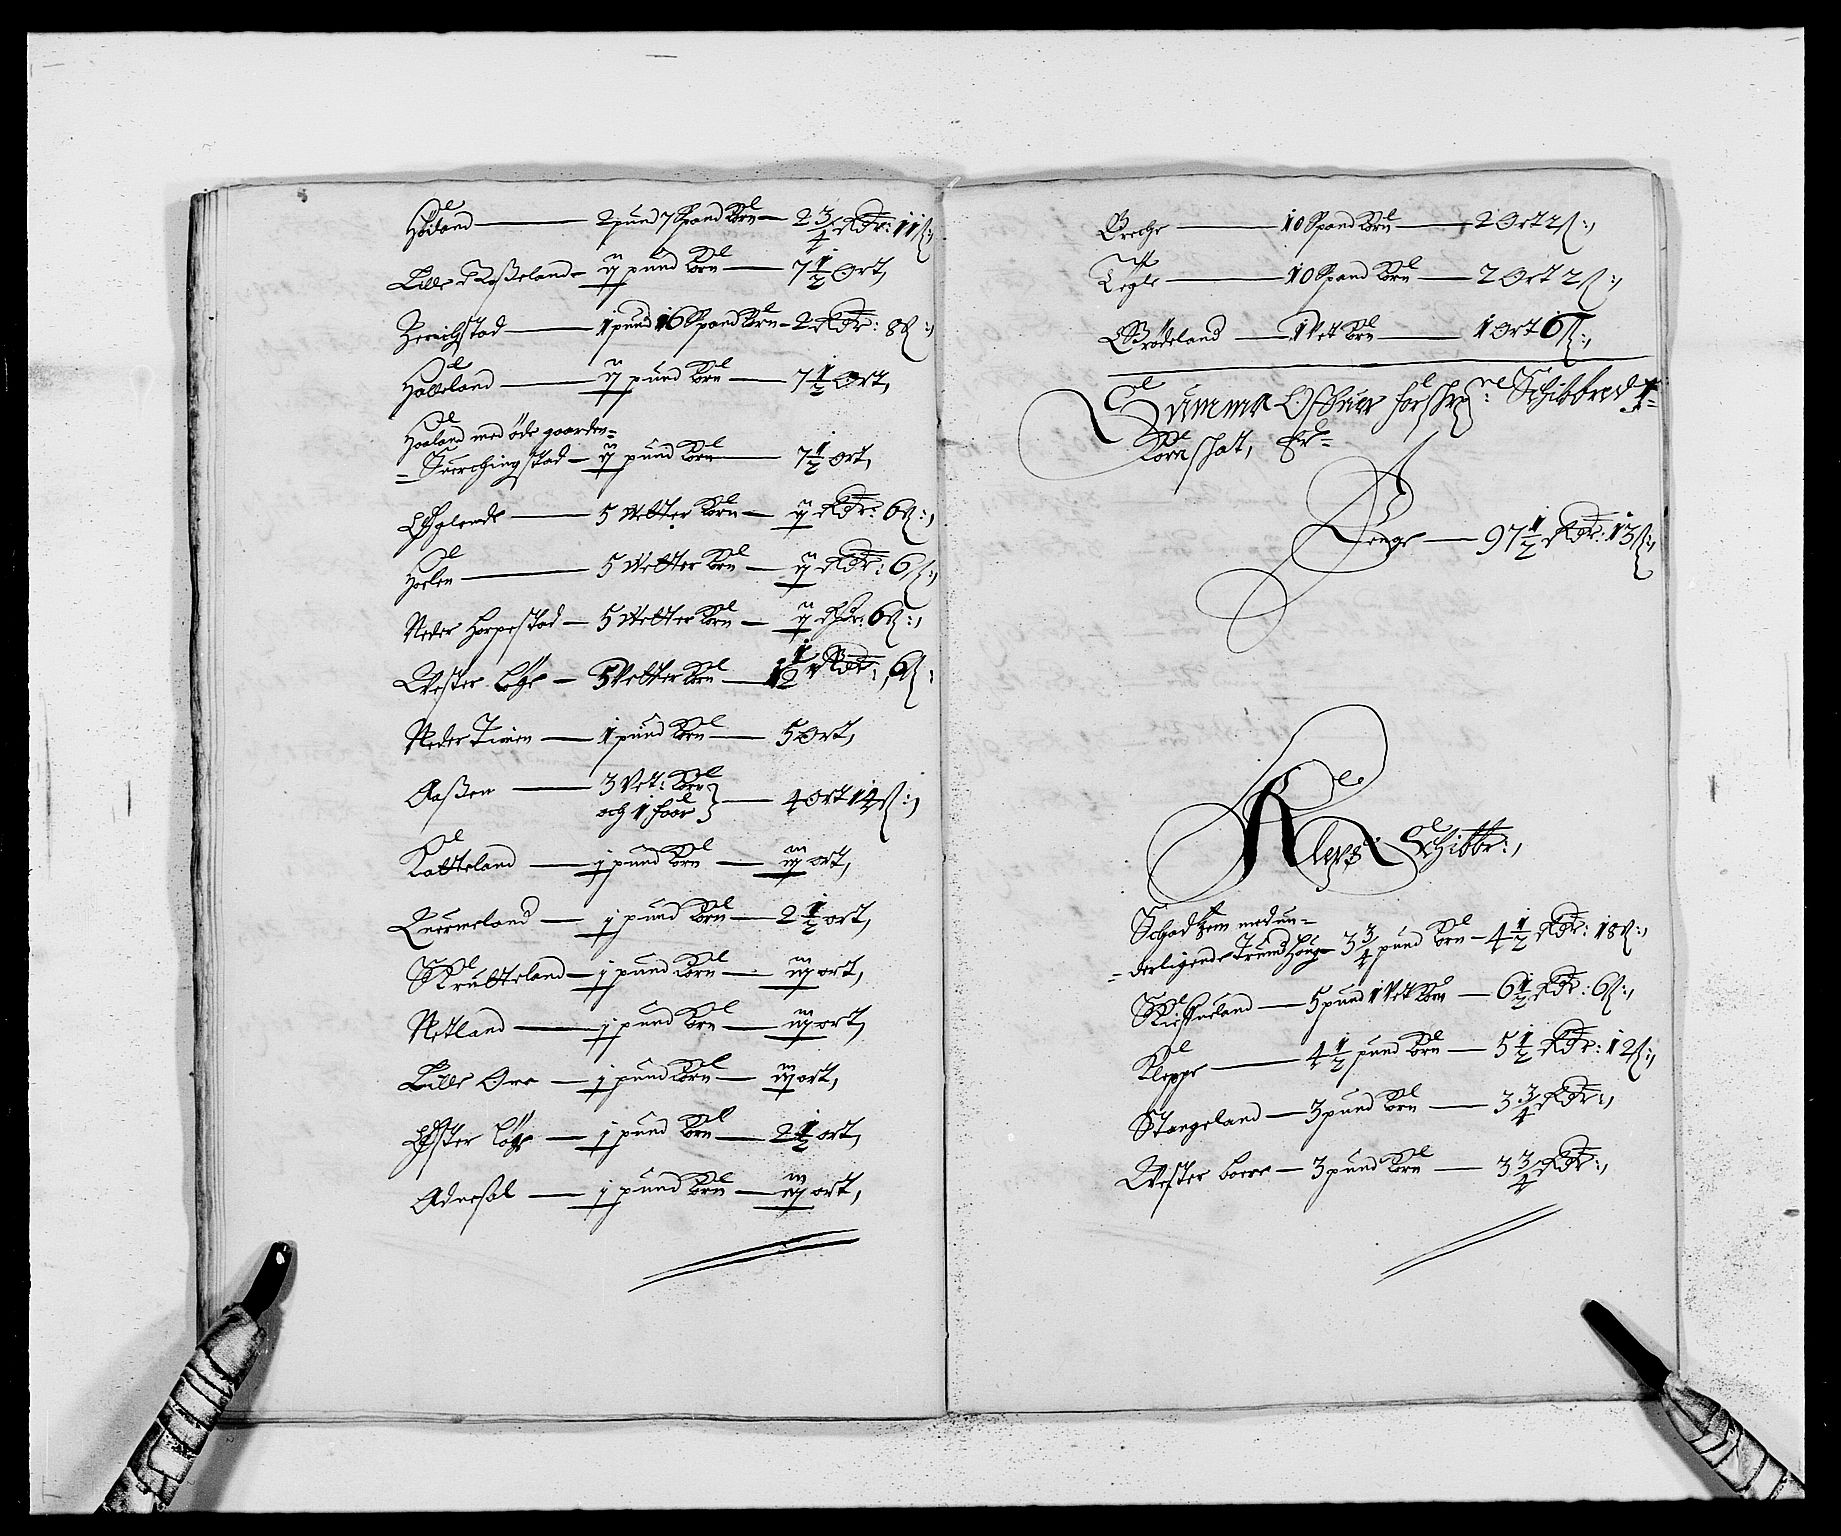 Høiland — 2 pund 7 Spand Korn — 2 3/4 Rdr: 11 s:,
Lille Roßeland — ij pund Korn — 7 1/2 Ort,
1 pund 16 Spand Korn — 2 Rdr: 8 s:,
Haveland — ij pund Korn — 7 1/2 Ort,
Haaland med øde gaarden=
=Tuerchingstad — ij pund Korn — 7 1/2 ort,
5 Vetter Korn — ij Rdr: 6 s:,
Hoelen — 5 Vetter Korn — ij Rdr: 6 s:,
Neder Horpestad — 5 Vetter Korn — ij Rdr: 6 s:,
Vester Løge — 5 Vetter Korn — 1 1/2 Rdr: 6 s:
Neder Timen — 1 pund Korn — 5 Ort,
Aaßen — 3 Vet: Korn
och 1 foer — 4 Ort 14 s:,
Katteland — j pund Korn — iij ort,
Quermeland — j pund Korn — 2 1/2 ort,
Skrutteland — j pund Korn — iij ort,
Netland — j pund Korn — iij ort,
Lille Ore — j pund Korn — iij ort,
Øster Løge — j pund Korn — 2 1/2 ort,
Adnesøl — j pund Korn — iij ort,
10 Spand Korn — 2 Ort 2 s:,
Tegle — 10 Spand Korn — 2 Ort 2 s:,
Brødeland — 1 Vet Korn — 1 Ort 6 s:,
Summa Ofuer forschr: Schibbred s=
Korn schat, Er=
Penge — 97 1/2 Rdr: 13 s:,
Klepz Schibbr:,
Schadhem med un=
=derligende Trundhoug — 3 3/4 pund Korn — 4 1/2 Rdr: 18 s:,
5 pund 1 Vet Korn — 6 1/2 Rdr: 6 s:,
Kleppe — 4 1/2 pund Korn — 5 1/2 Rdr: 12 s:,
Stangeland — 3 pund Korn — 3 3/4 Rdr:,
Vester Boere — 3 pund Korn — 3 3/4 Rdr:,